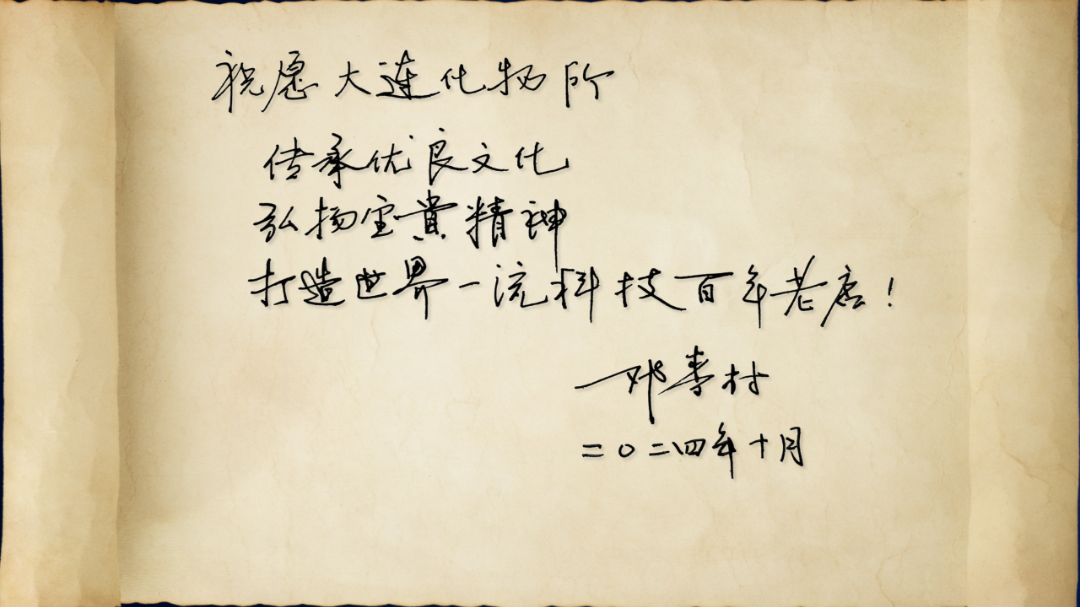 祝愿大连化物所
传承优良文化
弘扬宝贵精神
打造世界一流科技百年老店！
邓麦村
二〇二四年十月